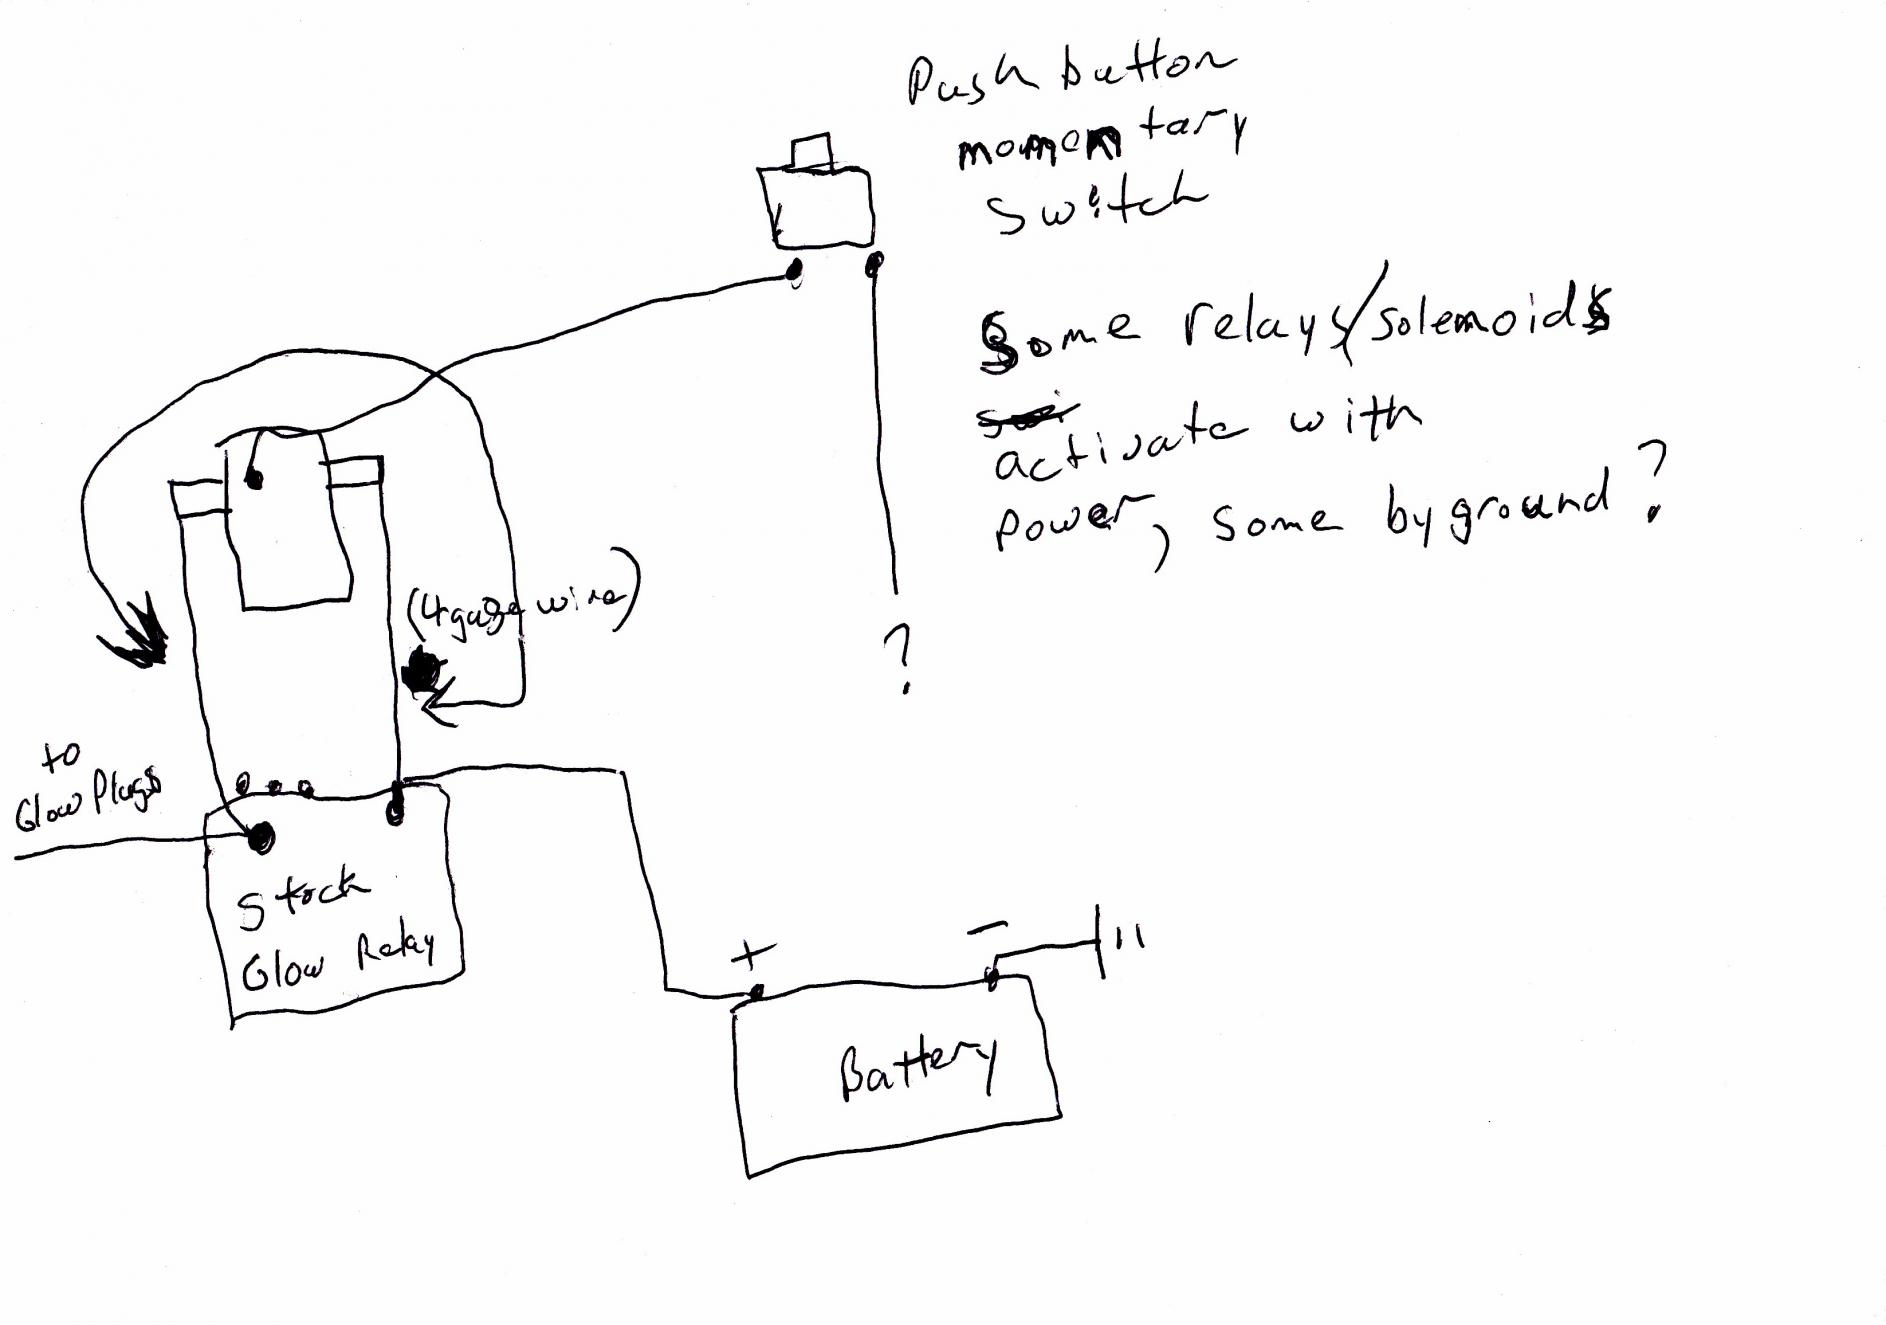 Push button
momentary
switch
Some relays/solemoids
activate with
power, some by ground?
(4gage wire)
?
to
Glow Plugs
Stock
Glow Relay
+
−
Battery